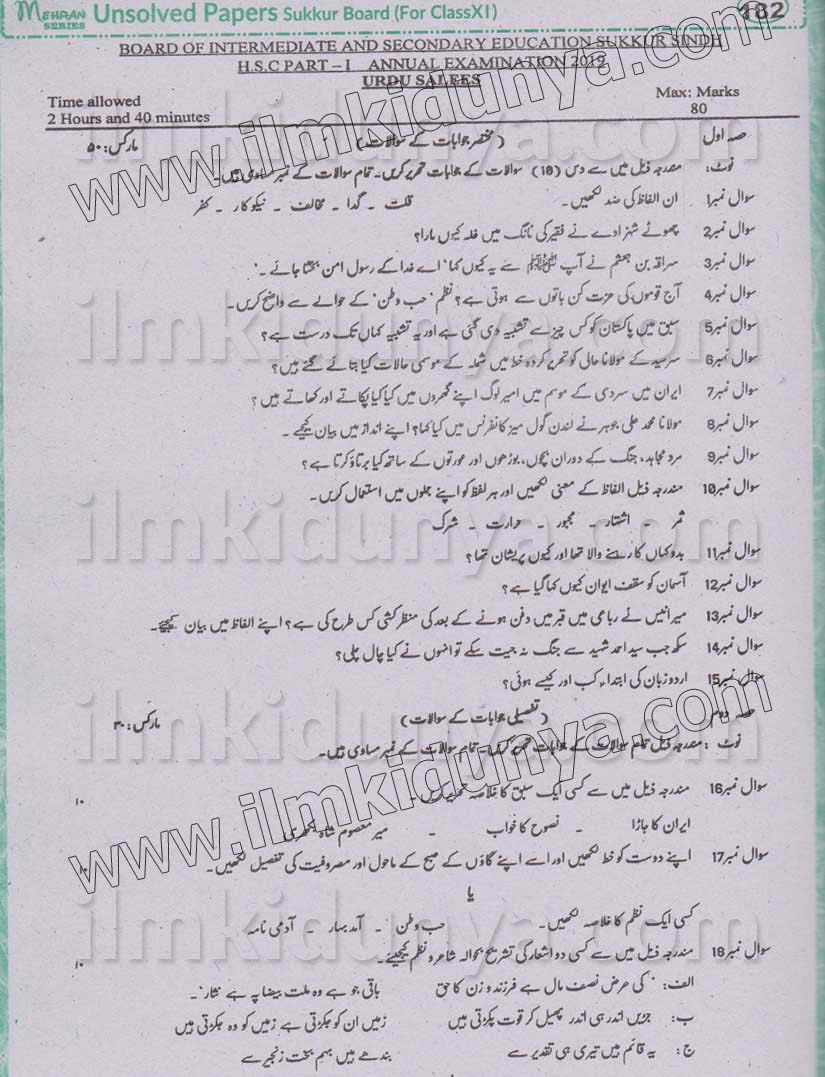 MEHRAN SERIES Unsolved Papers Sukkur Board (For Class XI) 182
BOARD OF INTERMEDIATE AND SECONDARY EDUCATION SUKKUR SINDH
H.S.C PART – I ANNUAL EXAMINATION 2019
URDU SALEES
Time allowed Max: Marks
2 Hours and 40 minutes 80
حصہ اول (مختصر جوابات کے سوالات) مارکس: ۵۰
نوٹ: مندرجہ ذیل میں سے دس (10) سوالات کے جوابات تحریر کریں۔ تمام سوالات کے نمبر مساوی ہیں۔
سوال نمبر1 ان الفاظ کی ضد لکھیں۔ قلت ۔ گدا ۔ مخالف ۔ نیکوکار ۔ کفر
سوال نمبر2 چھوٹے شہزادے نے فقیر کی ٹانگ میں غلہ کیوں مارا؟
سوال نمبر3 سراقہ بن جعشم نے آپ ﷺ سے یہ کیوں کہا 'اے خدا کے رسول امن بخشا جائے۔'
سوال نمبر4 آج قوموں کی عزت کن باتوں سے ہوتی ہے؟ نظم 'حب وطن' کے حوالے سے واضح کریں۔
سوال نمبر5 سبق میں پاکستان کو کس چیز سے تشبیہ دی گئی ہے اور یہ تشبیہ کہاں تک درست ہے؟
سوال نمبر6 سرسید کے مولانا حالی کو تحریر کردہ خط میں شملہ کے موسمی حالات کیا بتائے گئے ہیں؟
سوال نمبر7 ایران میں سردی کے موسم میں امیر لوگ اپنے گھروں میں کیا کیا پکاتے اور کھاتے ہیں؟
سوال نمبر8 مولانا محمد علی جوہر نے لندن گول میز کانفرنس میں کیا کہا؟ اپنے انداز میں بیان کیجیے۔
سوال نمبر9 مرد مجاہد، جنگ کے دوران بچوں، بوڑھوں اور عورتوں کے ساتھ کیا برتاؤ کرتا ہے؟
سوال نمبر10 مندرجہ ذیل الفاظ کے معنی لکھیں اور ہر لفظ کو اپنے جملوں میں استعمال کریں۔
ثمر ۔ اشتہار ۔ مجبور ۔ حرارت ۔ شرک
سوال نمبر11 بدو کہاں کا رہنے والا تھا اور کیوں پریشان تھا؟
سوال نمبر12 آسمان کو سقف ایوان کیوں کہا گیا ہے؟
سوال نمبر13 میر انیس نے رباعی میں قبر میں دفن ہونے کے بعد کی منظر کشی کس طرح کی ہے؟ اپنے الفاظ میں بیان کیجیے۔
سوال نمبر14 سکھ جب سید احمد شہید سے جنگ نہ جیت سکے تو انہوں نے کیا چال چلی؟
سوال نمبر15 اردو زبان کی ابتداء کب اور کیسے ہوئی؟
حصہ دوم (تفصیلی جوابات کے سوالات) مارکس: ۳۰
نوٹ: مندرجہ ذیل تمام سوالات کے جوابات تحریر کریں۔ تمام سوالات کے نمبر مساوی ہیں۔
سوال نمبر16 مندرجہ ذیل میں سے کسی ایک سبق کا خلاصہ تحریر کریں۔ ۱۰
ایران کا جاڑا ۔ نصوح کا خواب ۔ میر معصوم شاہ بکھری
سوال نمبر17 اپنے دوست کو خط لکھیں اور اسے اپنے گاؤں کے صبح کے ماحول اور مصروفیت کی تفصیل لکھیں۔ ۱۰
یا
کسی ایک نظم کا خلاصہ لکھیں۔ حب وطن ۔ آمد بہار ۔ آدمی نامہ
سوال نمبر18 مندرجہ ذیل میں سے کسی دو اشعار کی تشریح بحوالہ شاعر و نظم کیجیئے۔ ۱۰
الف: کی عرض نصف مال ہے فرزند و زن کا حق باقی جو ہے وہ ملت بیضا پہ ہے نثار'۔
ب: جڑیں اندر ہی اندر پھیل کر قوت پکڑتی ہیں زمیں ان کو جکڑتی ہے زمیں کو وہ جکڑتی ہیں
ج: یہ قائم ہیں تیری ہی تقدیر سے بندھے ہیں بہم بخت زنجیر سے
www.ilmkidunya.com
ilmkidunya.com
ilmkidunya.com
ilmkidunya.com
ilmkidunya.com
www.ilmkidunya.com
ilmkidunya.com